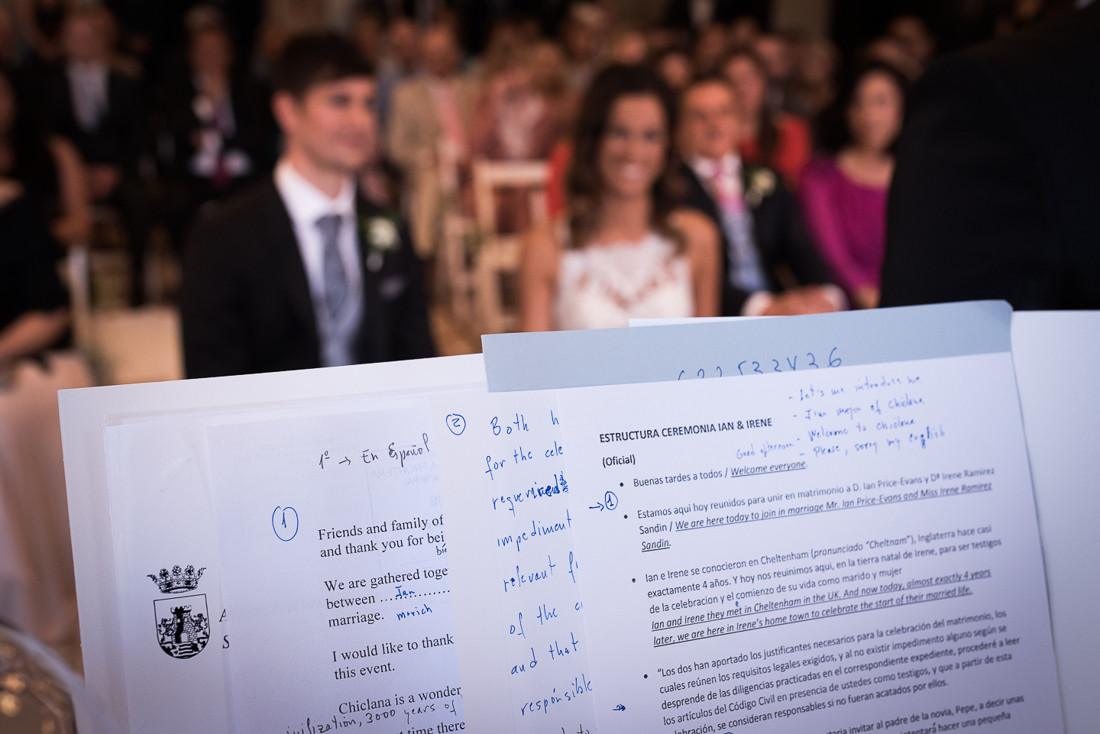 1º → En Español
1
Friends and family of
and thank you for bei
We are gathered toge
between ....Ian........
marriage.
I would like to thank
this event.
Chiclana is a wonder
civilization, 3000 years of
time there
2 Both h
for the cele
requeriments
impediment
relevant f
of the c
and that
responsible
- Let's me introduce me
- I'm mayor of Chiclana
Good afternoon - Welcome to Chiclana
- Please, sorry my english
ESTRUCTURA CEREMONIA IAN & IRENE
(Oficial)
• Buenas tardes a todos / Welcome everyone.
→ 1
• Estamos aquí hoy reunidos para unir en matrimonio a D. Ian Price-Evans y Dª Irene Ramirez
Sandin / We are here today to join in marriage Mr. Ian Price-Evans and Miss Irene Ramirez
Sandin.
• Ian e Irene se conocieron en Cheltenham (pronunciado "Cheltnam"), Inglaterra hace casi
exactamente 4 años. Y hoy nos reunimos aquí, en la tierra natal de Irene, para ser testigos
de la celebracion y el comienzo de su vida como marido y mujer
Ian and Irene they met in Cheltenham in the UK. And now today, almost exactly 4 years
later, we are here in Irene's home town to celebrate the start of their married life.
• "Los dos han aportado los justificantes necesarios para la celebración del matrimonio, los
cuales reúnen los requisitos legales exigidos, y al no existir impedimento alguno según se
desprende de las diligencias practicadas en el correspondiente expediente, procederé a leer
los artículos del Código Civil en presencia de ustedes como testigos, y que a partir de esta
celebración, se consideran responsables si no fueran acatados por ellos.
invitar al padre de la novia, Pepe, a decir unas
intentará hacer una pequeña